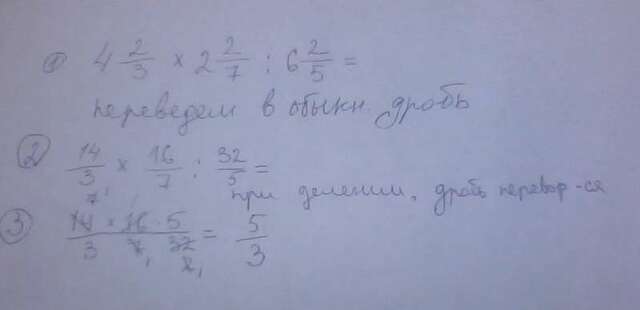 1) 4 2/3 × 2 2/7 : 6 2/5 =
переведем в обыкн. дробь
2) 14/3 × 16/7 : 32/5 =
при делении, дробь перевор-ся
3) 14 × 16 · 5 / 3 7 32 = 5/3